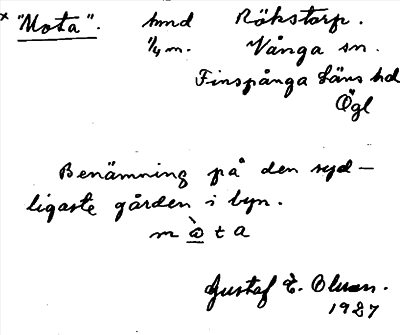 × "Mota". hmd Rökstorp.
1/4 m. Vånga sn.
Finspånga Läns hd
Ögl
Benämning på den syd-
ligaste gården i byn.
m ò t a
Gustaf E. Olsson.
1927